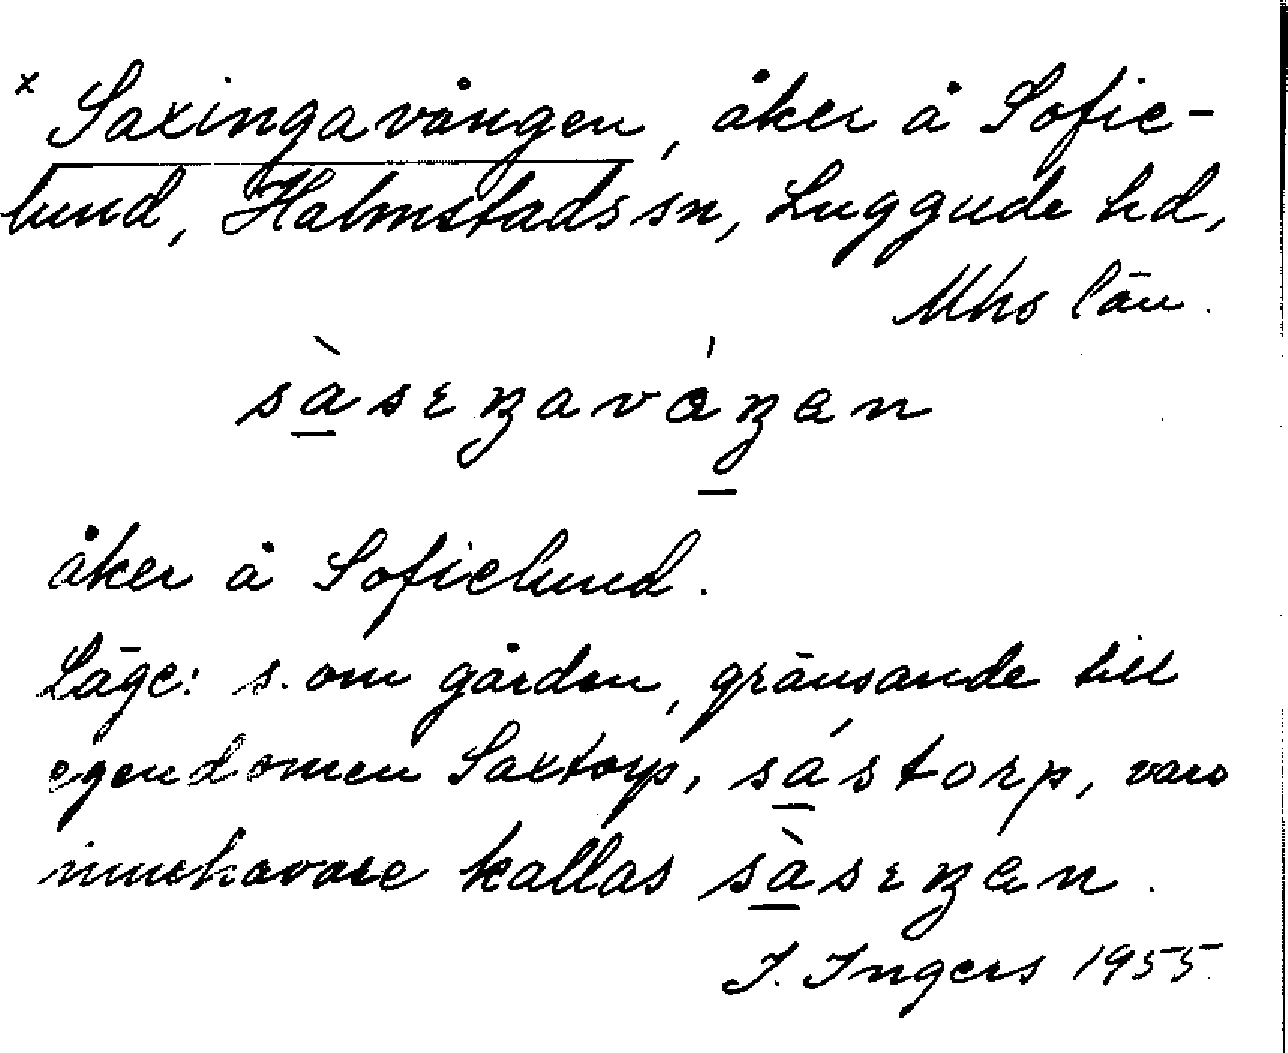 x Saxingavången, åker å Sofie-
lund, Halmstads sn, Luggude hd,
Mhs län.
sàsıŋaváŋən
åker å Sofielund.
Läge: s. om gården, gränsande till
egendomen Saxtorp, sástorp, vars
innehavare kallas sàsıŋən.
I. Ingers 1955.